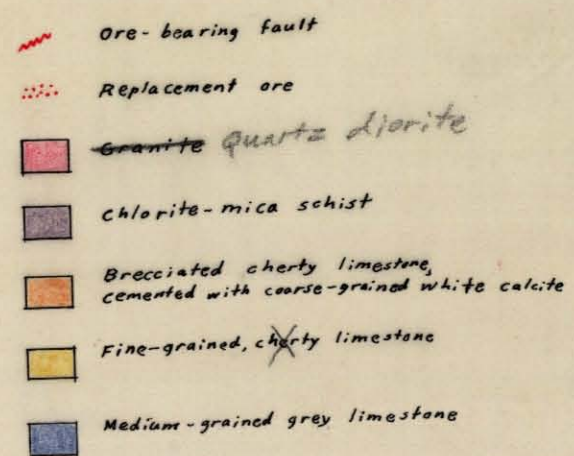 Ore-bearing fault
Replacement ore
Granite Quartz diorite
Chlorite-mica schist
Brecciated cherty limestone,
cemented with coarse-grained white calcite
Fine-grained, cherty limestone
Medium-grained grey limestone